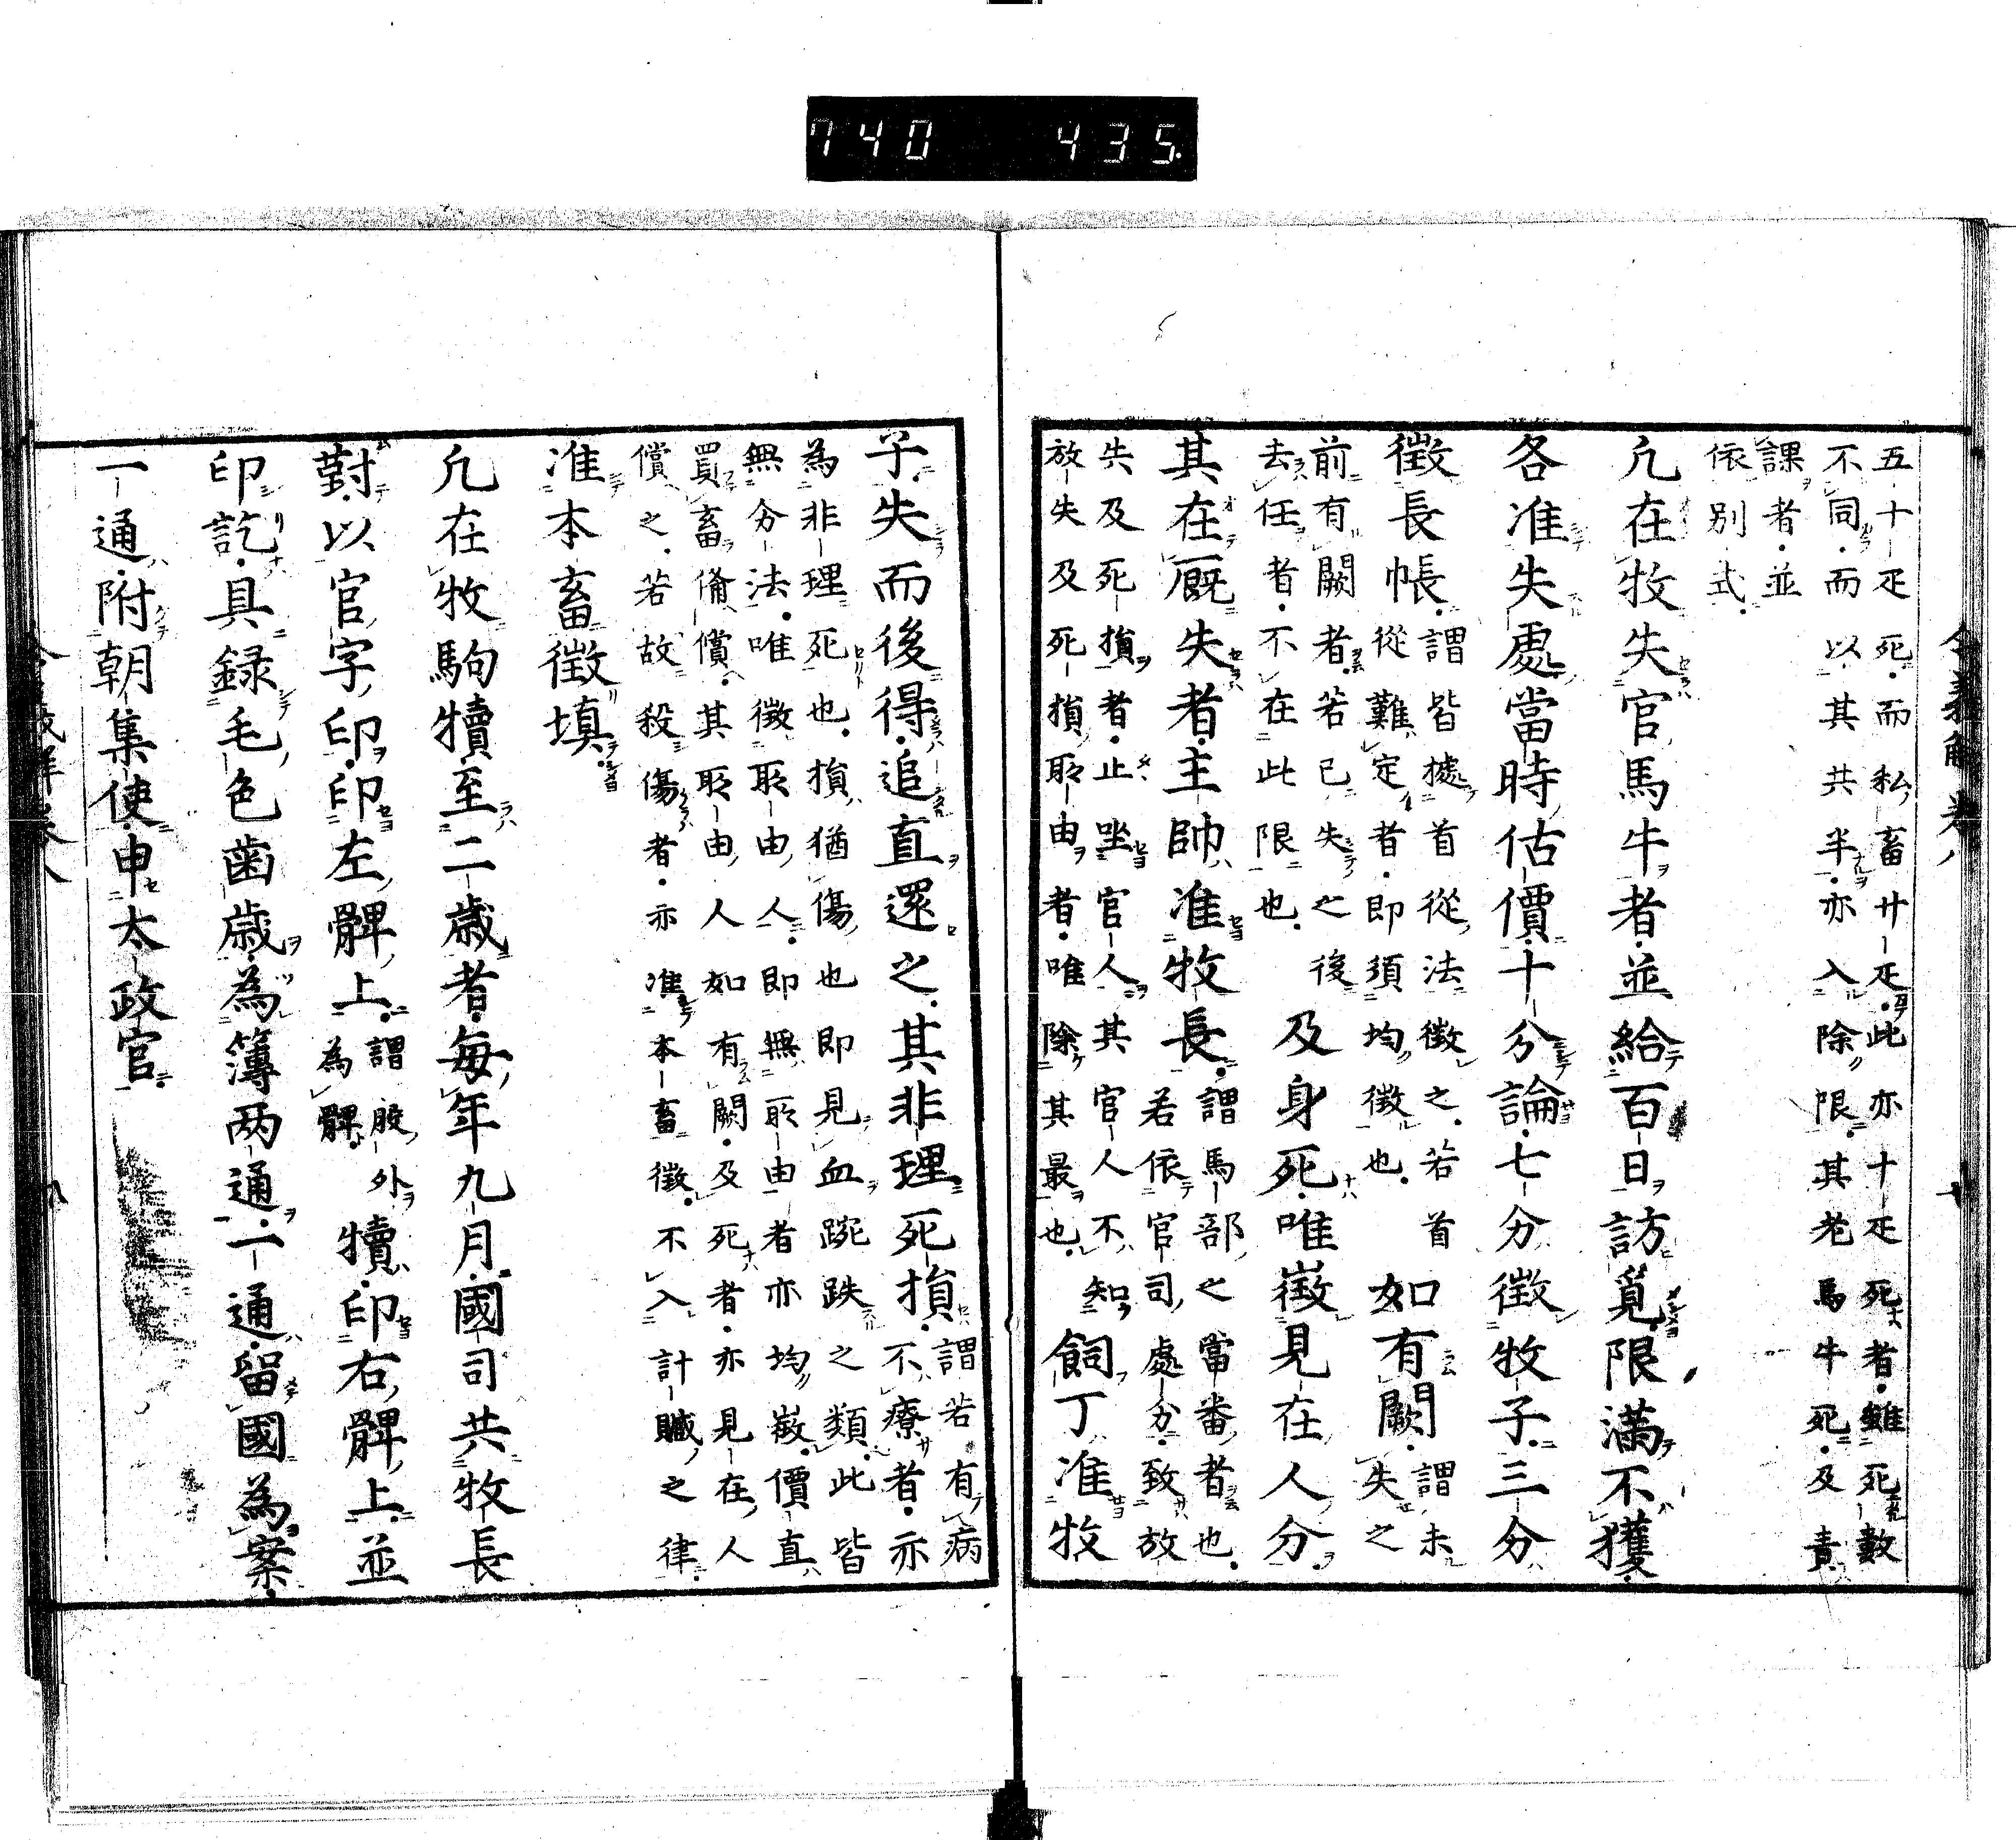 740 435.
五十疋死。而私畜廿疋。此亦十疋死者。雖死數
不同。而以其共半。亦入除限。其老馬牛死。及責
課者。並
依別式。
凢在牧失官馬牛者。並給百日訪覓。限滿不獲。
各准失處當時估價。十分論。七分徵牧子。三分
徵長帳。謂皆據首從法徵之。若首
從難定者。即須均徵也。如有闕。謂未
失之
前有闕者。若已失之後
去任者。不在此限也。及身死。唯徵見在人分。
其在厩失者。主帥准牧長。謂馬部之當番者也。
若依官司處分。致放
失及死損者。止坐官人。其官人不知
放失及死損所由者。唯除其最也。飼丁准牧
子。失而後得。追直還之。其非理死損。謂若有病
不療者。亦
為非理死也。損猶傷也。即見血踠跌之類。此皆
無分法。唯徵所由人。即無所由者。亦均徵。價直
買畜備償。其所由人。如有闕。及死者。亦見在人
償之。若故殺傷者。亦准本畜徵。不入計贓之律。
准本畜徵填。
凢在牧駒犢。至二歲者。每年九月。國司共牧長
對。以官字印。印左髀上。謂股外
為髀。犢。印右髀上。並
印訖。具録毛色齒歲。為簿兩通。一通。留國為案。
一通。附朝集使。申太政官。